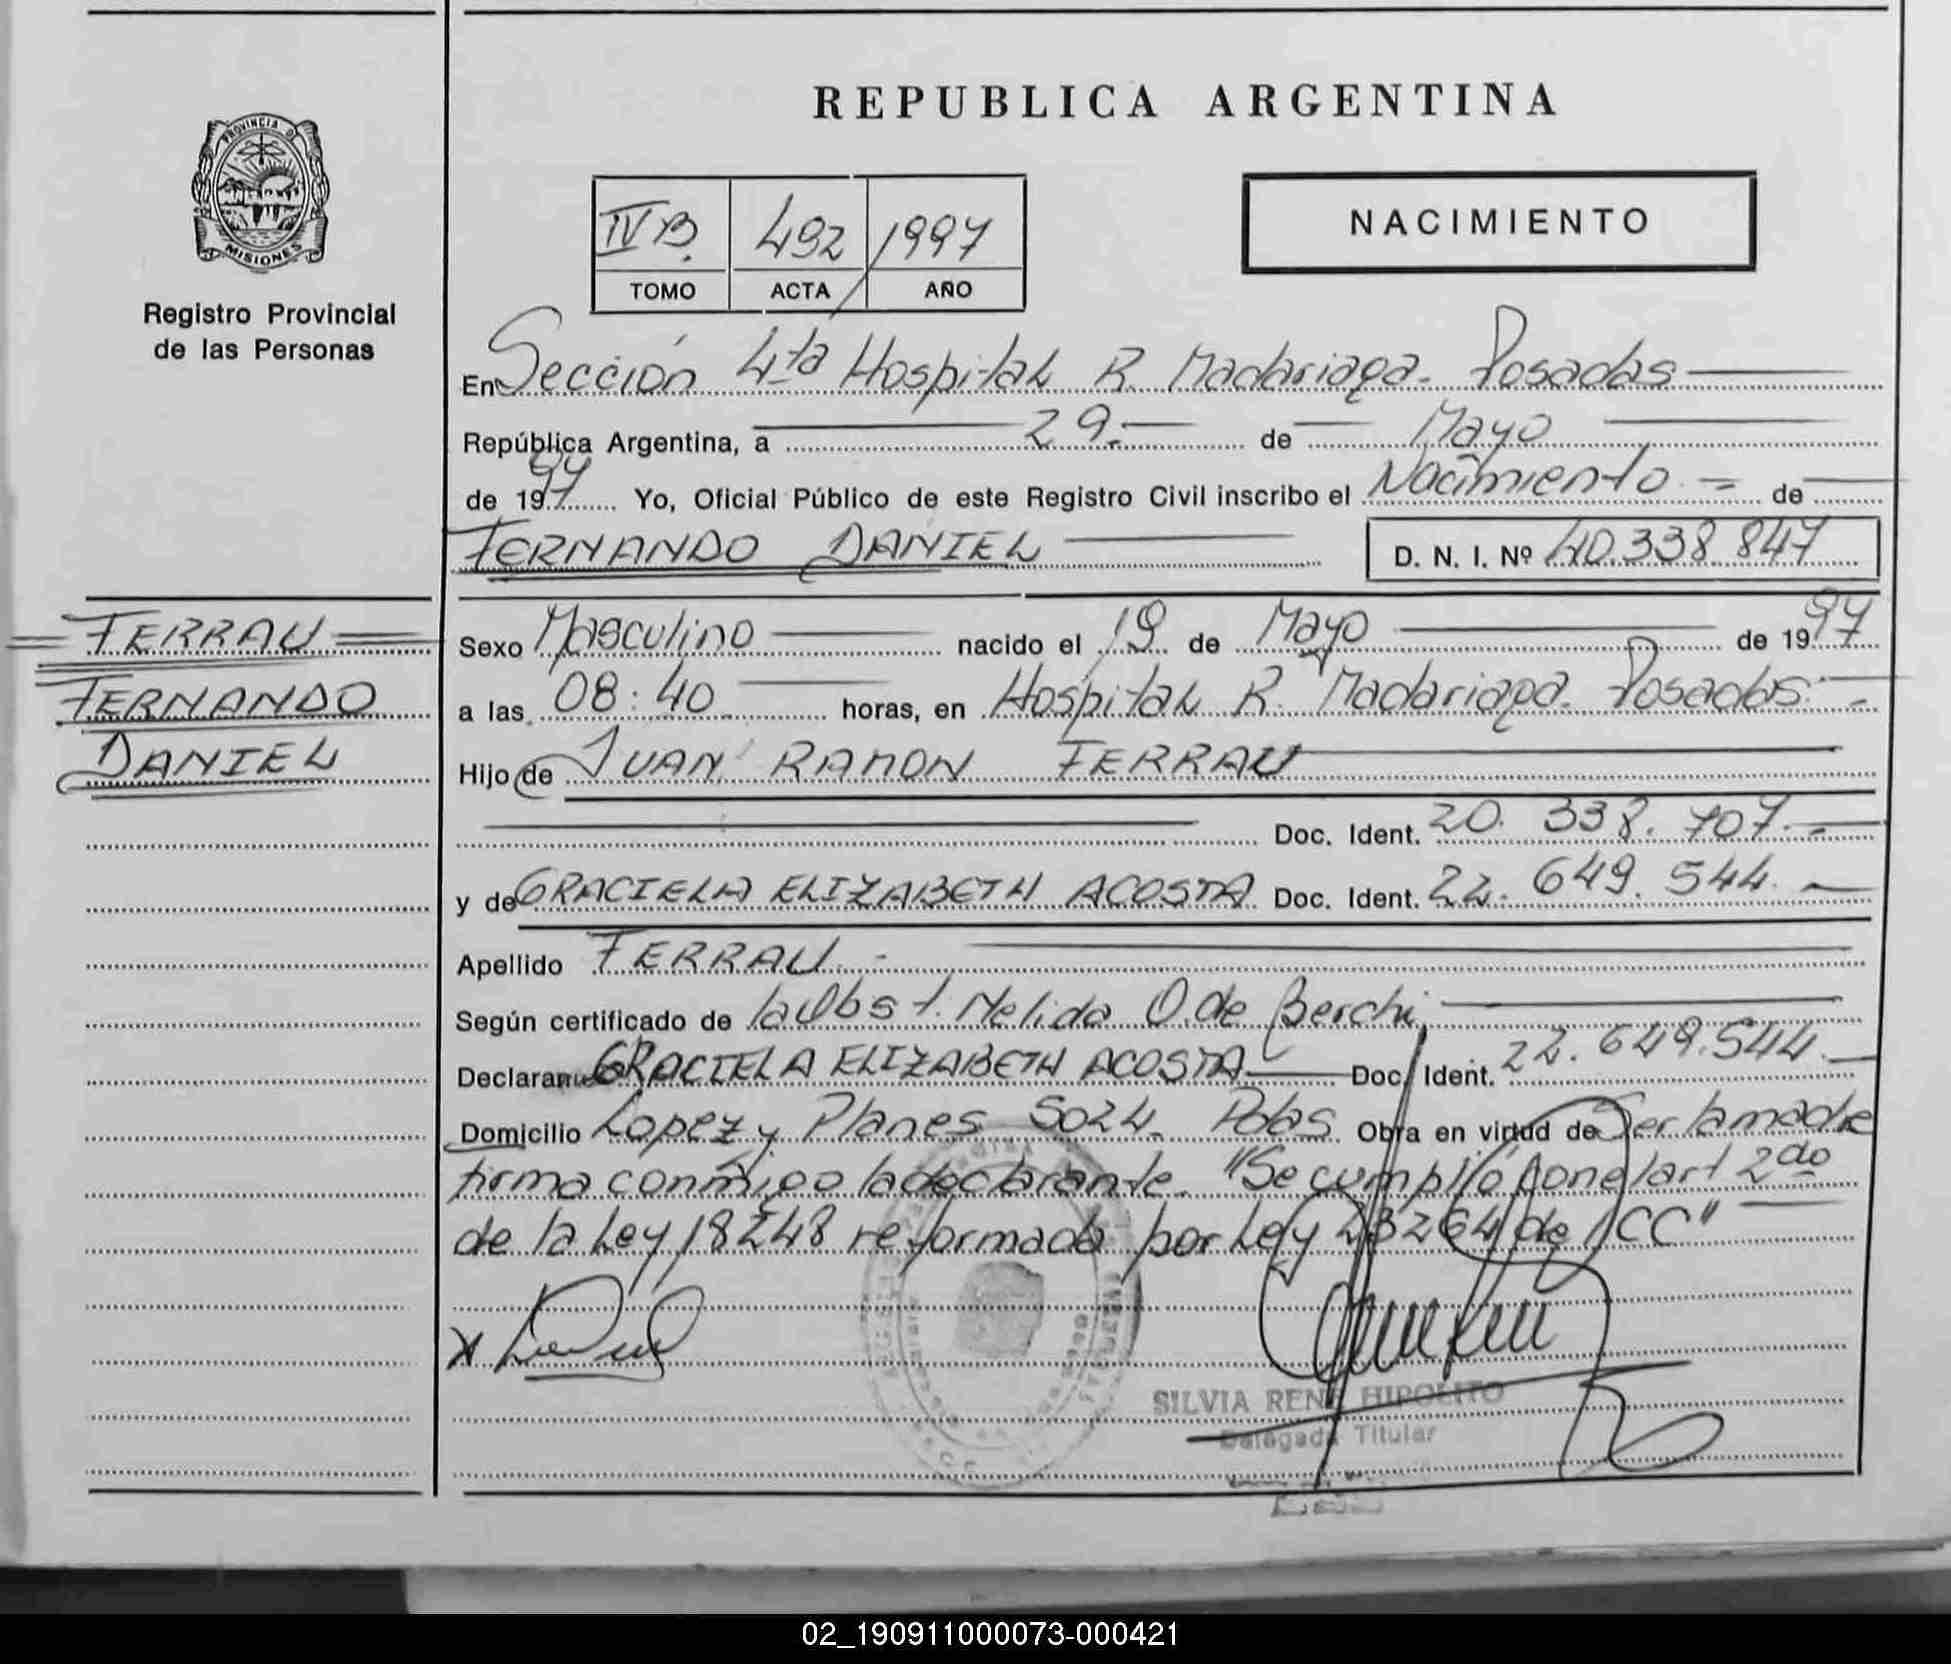 PROVINCIA DE
MISIONES
Registro Provincial
de las Personas
REPUBLICA ARGENTINA
IV B. 492 1997
TOMO ACTA AÑO
NACIMIENTO
En Sección 4ta Hospital R. Madariaga. Posadas
República Argentina, a 29.- de Mayo
de 1997 Yo, Oficial Público de este Registro Civil inscribo el Nacimiento de
FERNANDO DANIEL D. N. I. Nº 40.338.847
FERRAU
FERNANDO
DANIEL
Sexo Masculino nacido el 19 de Mayo de 1997
a las 08:40 horas, en Hospital R. Madariaga. Posadas.-
Hijo de JUAN RAMON FERRAU
Doc. Ident. 20.338.707.-
y de GRACIELA ELIZABETH ACOSTA Doc. Ident. 22.649.544.
Apellido FERRAU.-
Según certificado de la Obst. Nelida O. de Berchi
Declarante GRACIELA ELIZABETH ACOSTA Doc. Ident. 22.649.544.
Domicilio Lopez y Planes 5024. Pdas Obra en virtud de Ser la madre
firma conmigo la declarante. "Se cumplió con el art 2do
de la Ley 18248 reformada por Ley 23264 de CC"
SILVIA RENE HIPOLITO
Delegada Titular
02_190911000073-000421